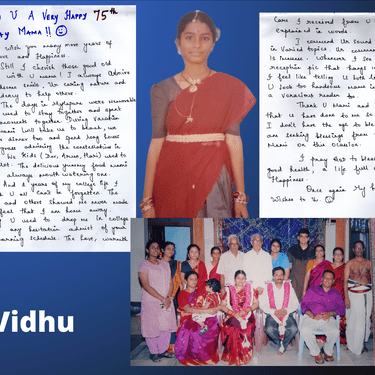 U A Very Happy 75th
Mama!!
wish you many more years of
and Happiness.
Still I cherish those old
with U mama! I always Admire
smile, Ur caring nature and
to help others.
The days in Mylapore were memorable
used to stay together and spent
moments together. During vacation
mami will take us to beach, we
dinner too and spend long hours
admiring the constellation in
We kids (Sri, Arun, Mani) used to
lot. The delicious yummy food mami
always mouth watering one.
And 2 years of my college life
U all Can't be forgotten. The
and others showed me never made
feel that I am home away.
U used to drop me in college
any hesitation admist of your
schedule. The love, warmth
Care I received from U
explained in words
I admired Ur sound
in Varied topics. Ur
is immense. Whenever I see
reception pic that hangs
I feel like telling U both
U look too handsome mama in
a Veracious reader too.
Thank U Mami and
that U have done to me so
I don't have the age to
are seeking blessings from
Mami on this Occasion.
I pray God to bless
good health, a life full of
Happiness.
Once again My
Wishes to U. ☺
Vidhu